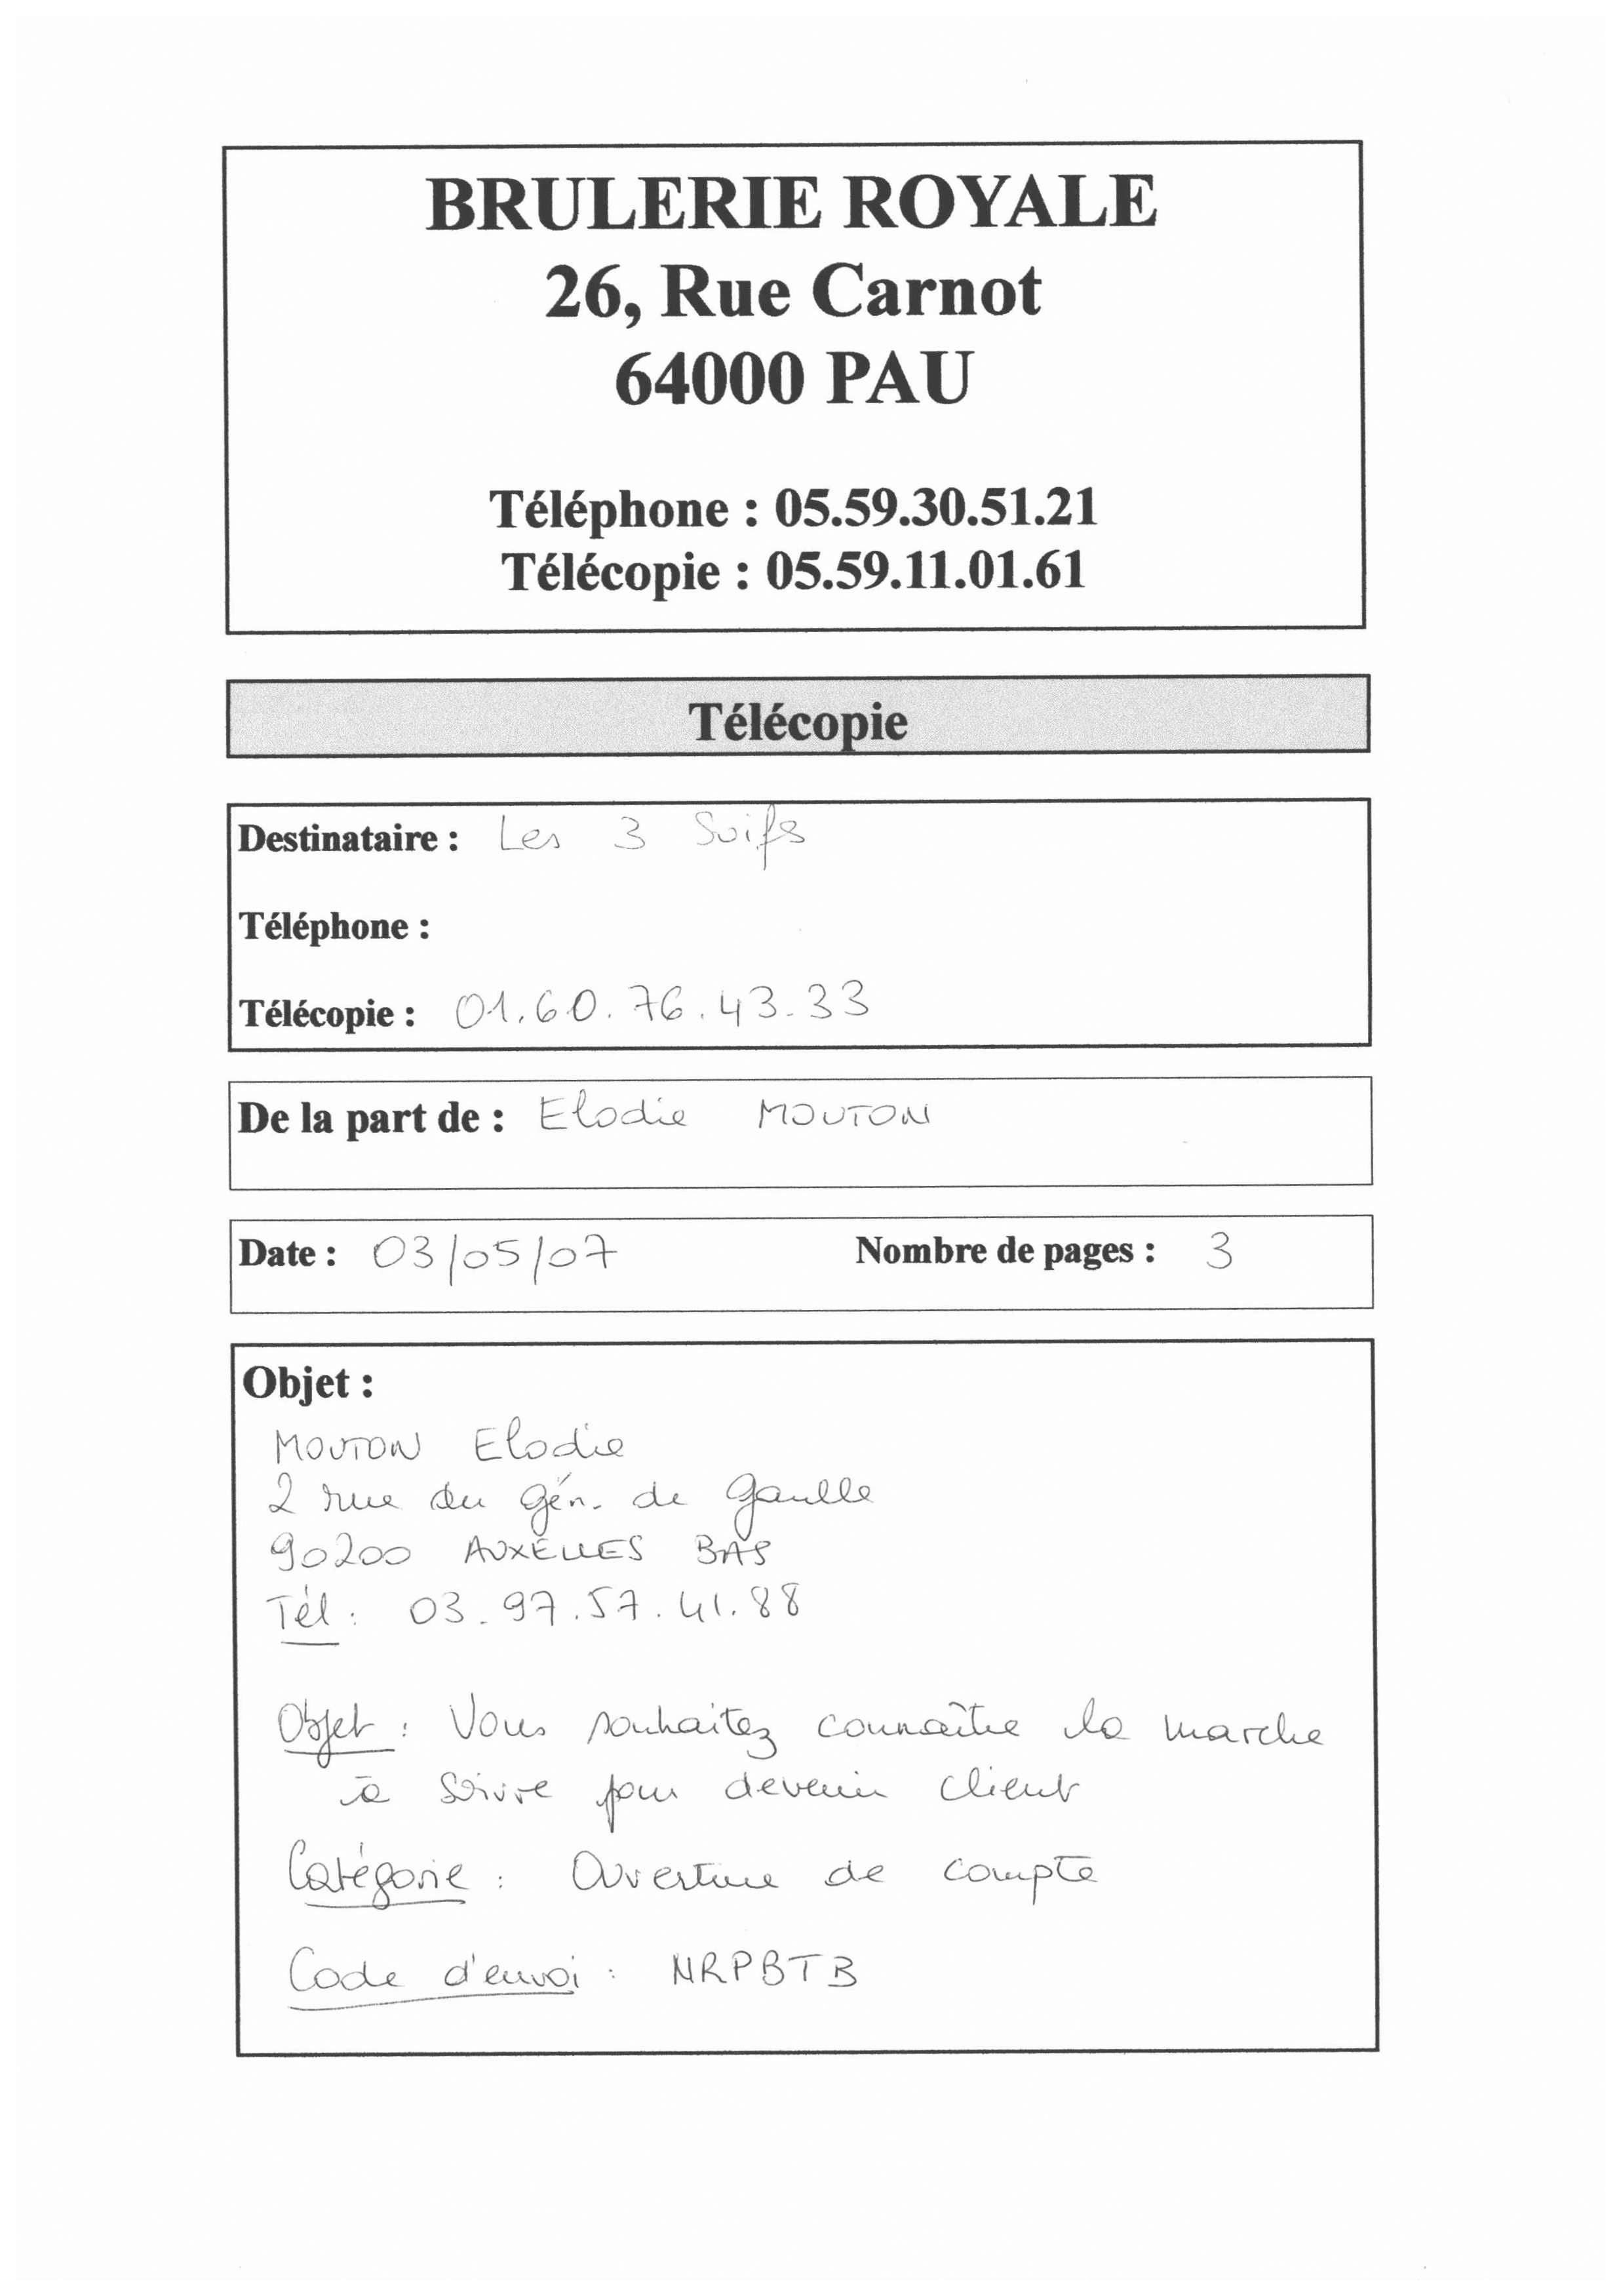 BRULERIE ROYALE
26, Rue Carnot
64000 PAU
Téléphone : 05.59.30.51.21
Télécopie : 05.59.11.01.61
Télécopie
Destinataire : Les 3 Suifs
Téléphone :
Télécopie : 01.60.76.43.33
De la part de : Elodie MOUTON
Date : 03/05/07 Nombre de pages : 3
Objet :
MOUTON Elodie
2 rue du gén. de gaulle
90200 AUXELLES BAS
Tél : 03.97.57.41.88
Objet : Vous souhaitez connaître la marche
à suivre pour devenir client
Catégorie : Ouverture de compte
Code d'envoi : NRPBTB